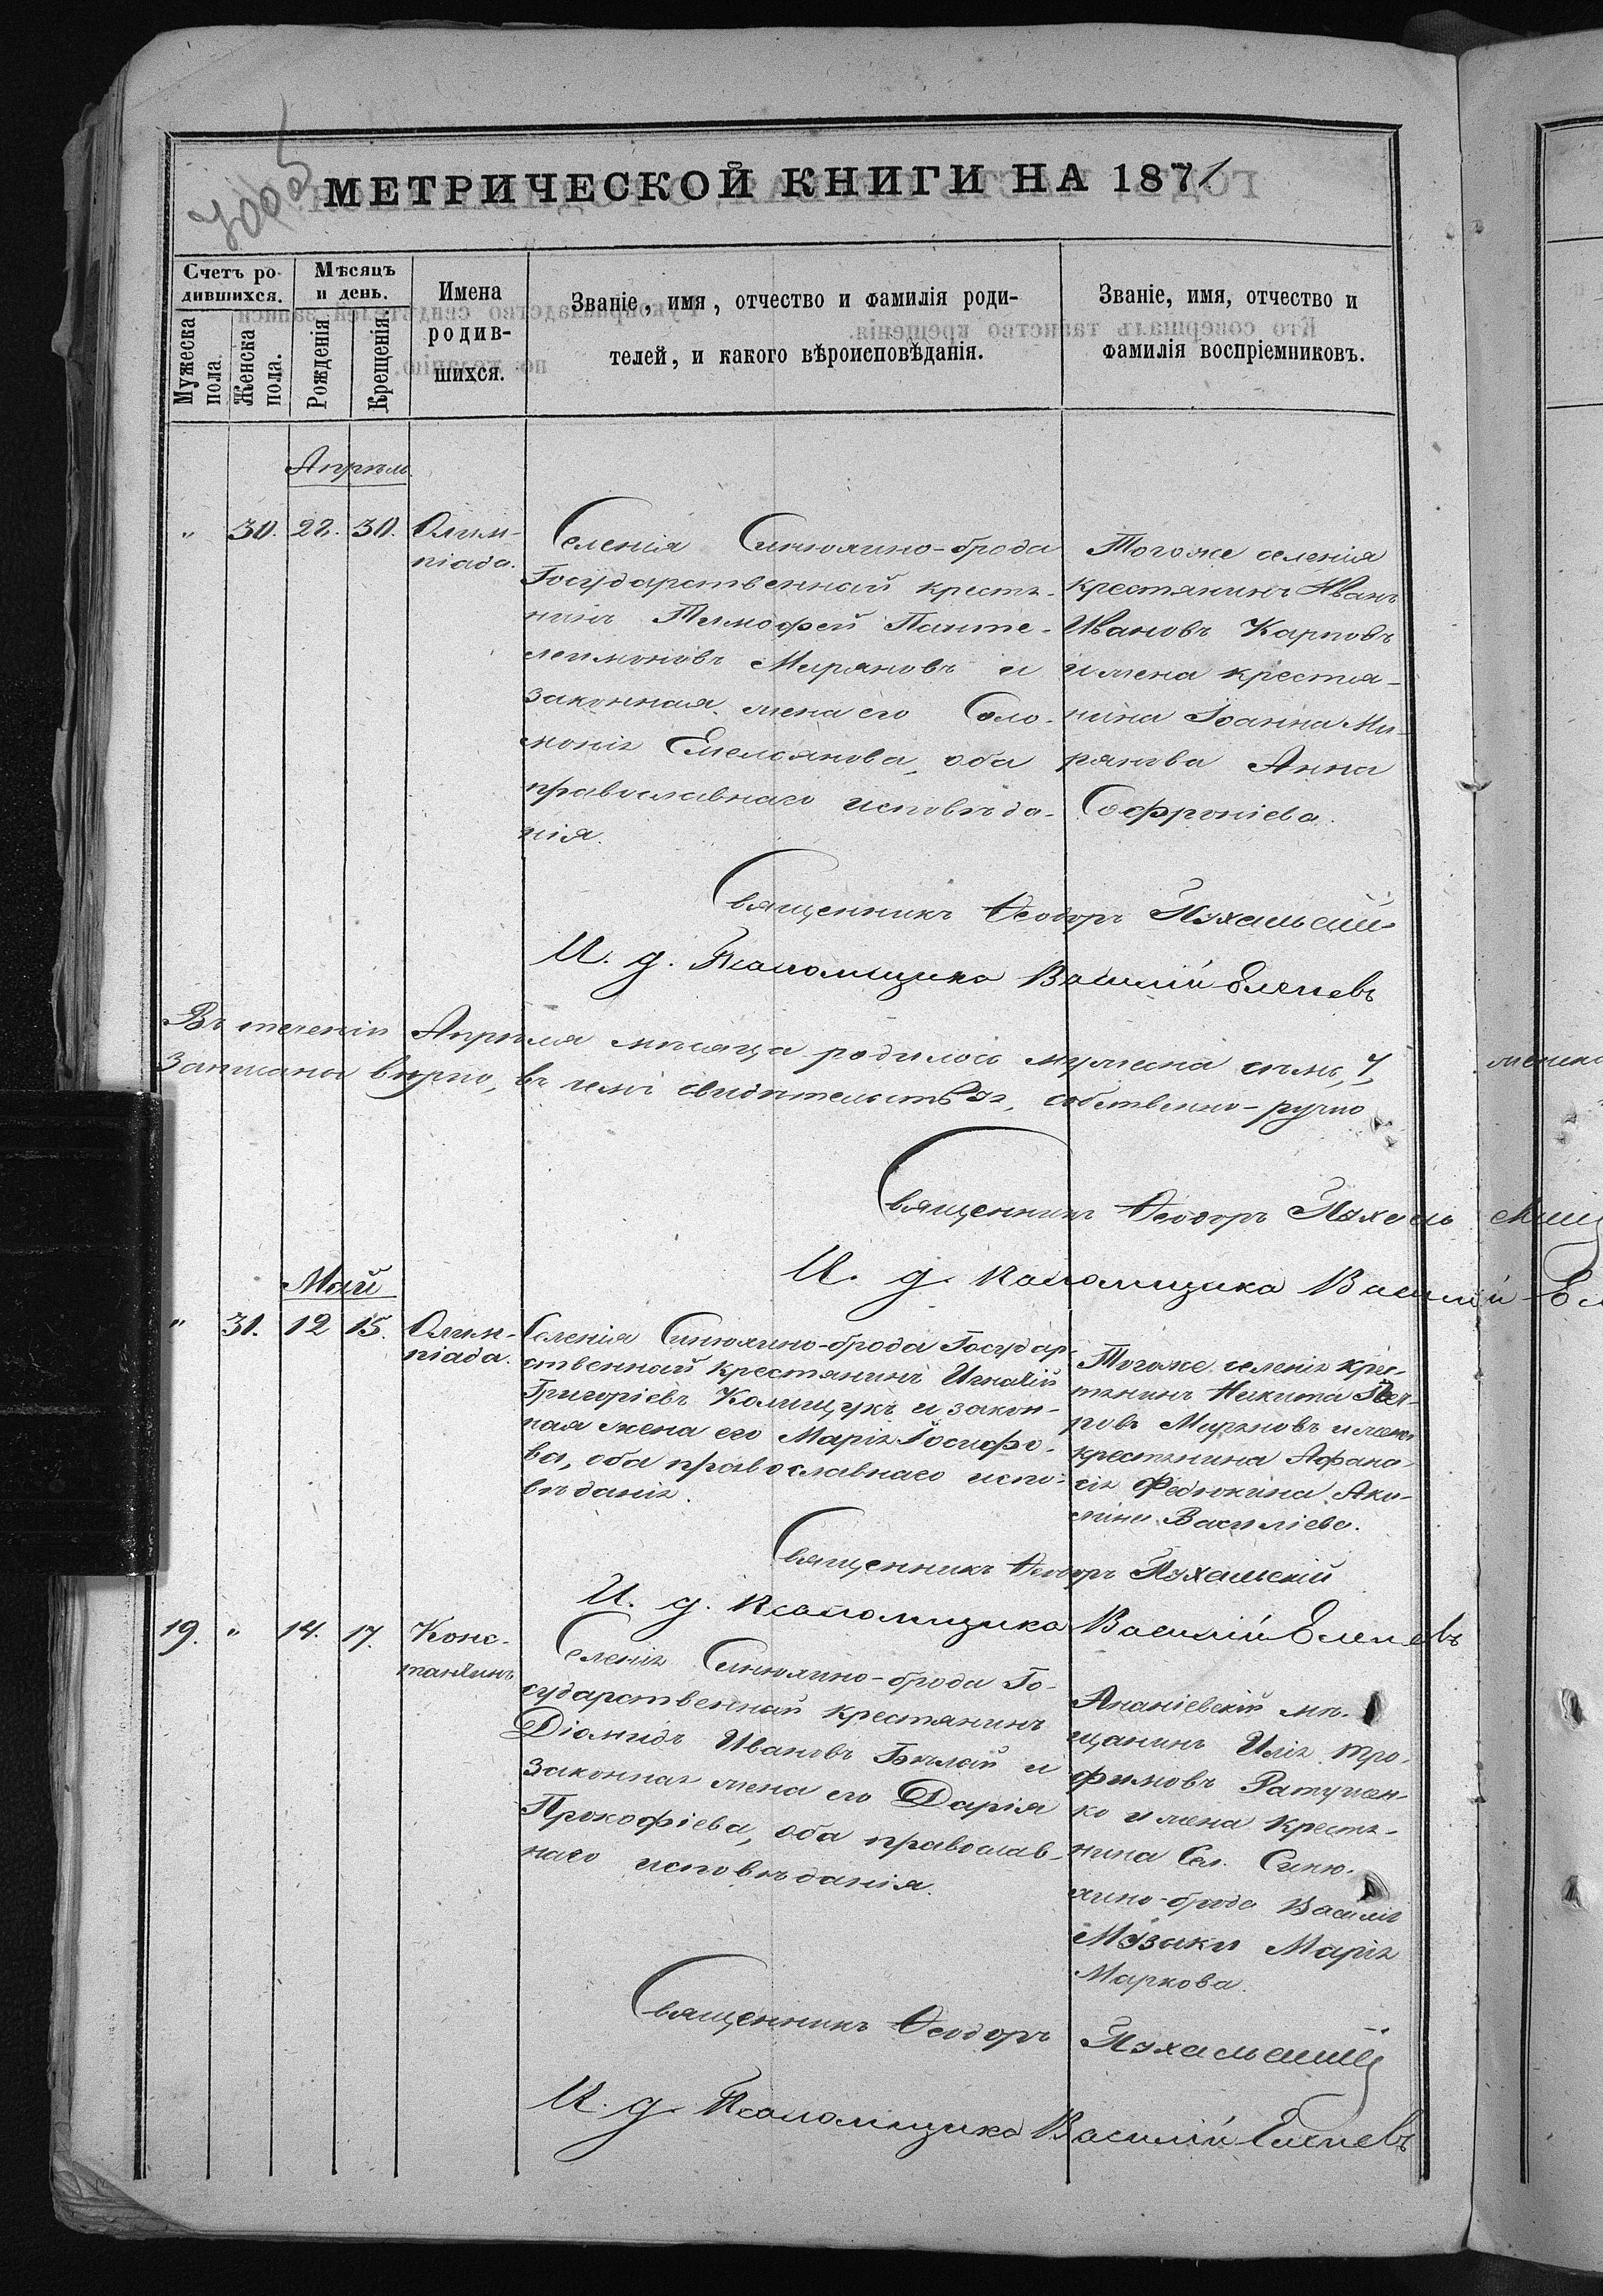 7005
МЕТРИЧЕСКОЙ КНИГИ НА 1871
Счетъ ро-
дившихся.
Мѣсяцъ
и день.
Мужеска
пола.
Женска
пола.
Рожденія
Крещенія.
Имена
родив-
шихся.
Званіе, имя, отчество и фамилія роди-
телей, и какого вѣроисповѣданія.
Званіе, имя, отчество и
фамилія воспріемниковъ.
Апрѣль.
" 30. 22. 30.
Олим-
піада.
Селенія Синюхино-брода
Государственный крестя-
нинъ Тимофей Панте-
леимоновъ Миряновъ и
законная жена его Соло-
монія Емеліанова, оба
православнаго исповѣда-
нія.
Тогоже селенія
крестянинъ Иванъ
Ивановъ Карповъ
и жена крестья-
нина Іоанна Ми-
рянова Анна
Софроніева.
Священникъ Ѳеодоръ Пухальскій
И. д. Псаломщика Василій Елепевъ
Въ теченіи Апрѣля мѣсяца родилось мужеска семь, 7,
женска
Записаны вѣрно, въ чемъ свидѣтельствуя, собственно-ручно
Священникъ Ѳеодоръ Пухаль
И. д. Псаломщика Василій Ел
Май
" 31. 12 15.
Олим-
піада.
Селенія Синюхино-брода Государ-
ственный крестянинъ Игнатій
Григоріевъ Колищукъ и закон-
ная жена его Марія Іосифо-
ва, оба православнаго испо-
вѣданія.
Тогоже селенія крес-
тянинъ Никита Пет-
ровъ Миряновъ и жена
крестянина Афана-
сія Федюкина Аки-
лина Василіева.
Священникъ Ѳеодоръ Пухальскій
И. д. Псаломщика Василій Елепевъ
19. " 14. 17.
Конс-
тантинъ
Селенія Синюхино-брода Го-
сударственный крестянинъ
Діомидъ Ивановъ Бѣлый и
законная жена его Дарія
Прокофіева, оба православ-
наго исповѣданія.
Ананіевскій мѣ-
щанинъ Илія Тро-
фимовъ Ратушен-
ко и жена крестя-
нина Сел. Синю-
хино-брода Василія
Музыки Марія
Маркова.
Священникъ Ѳеодоръ Пухальскій
И. д. Псаломщика Василій Елепевъ